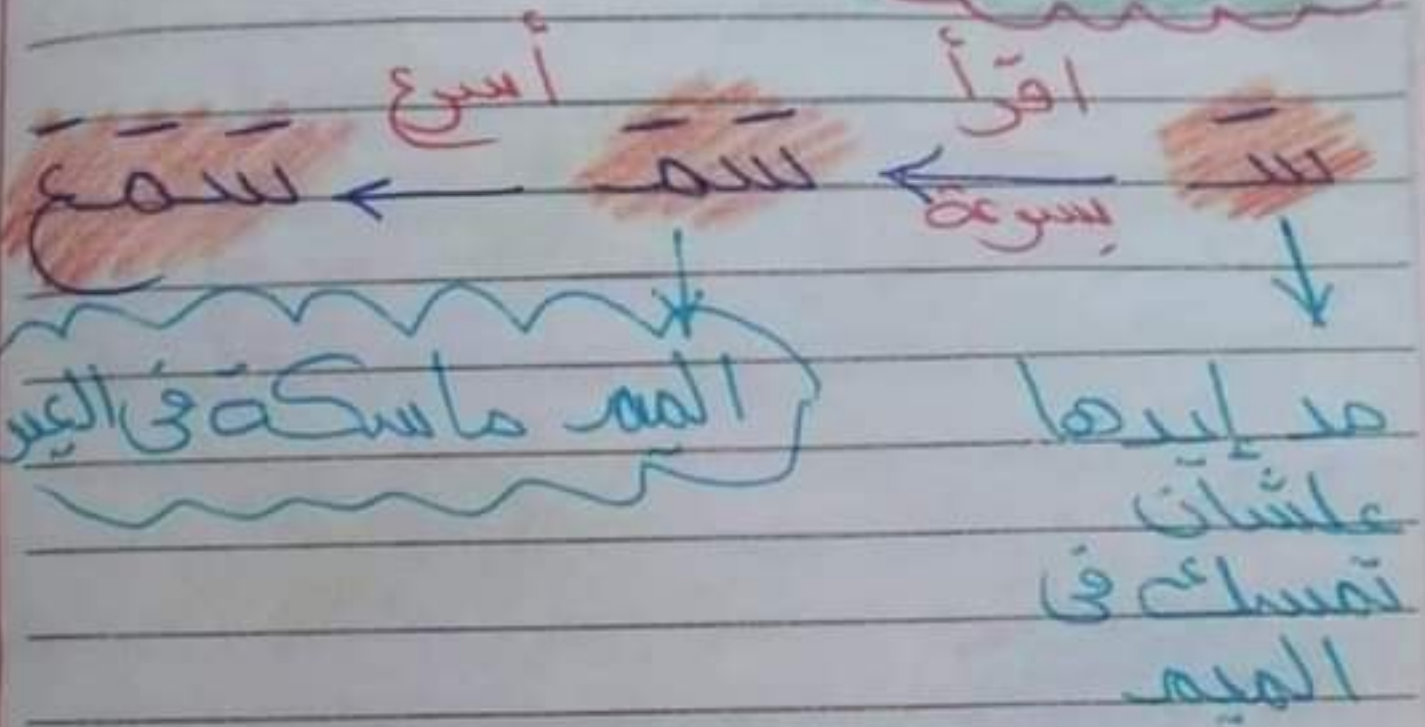 سَـ اقرأ بسرعة سَمَـ أسرع سَمَعَ
مد إيدها
علشان
تمسك فى
الميم
الميم ماسكة فى العين